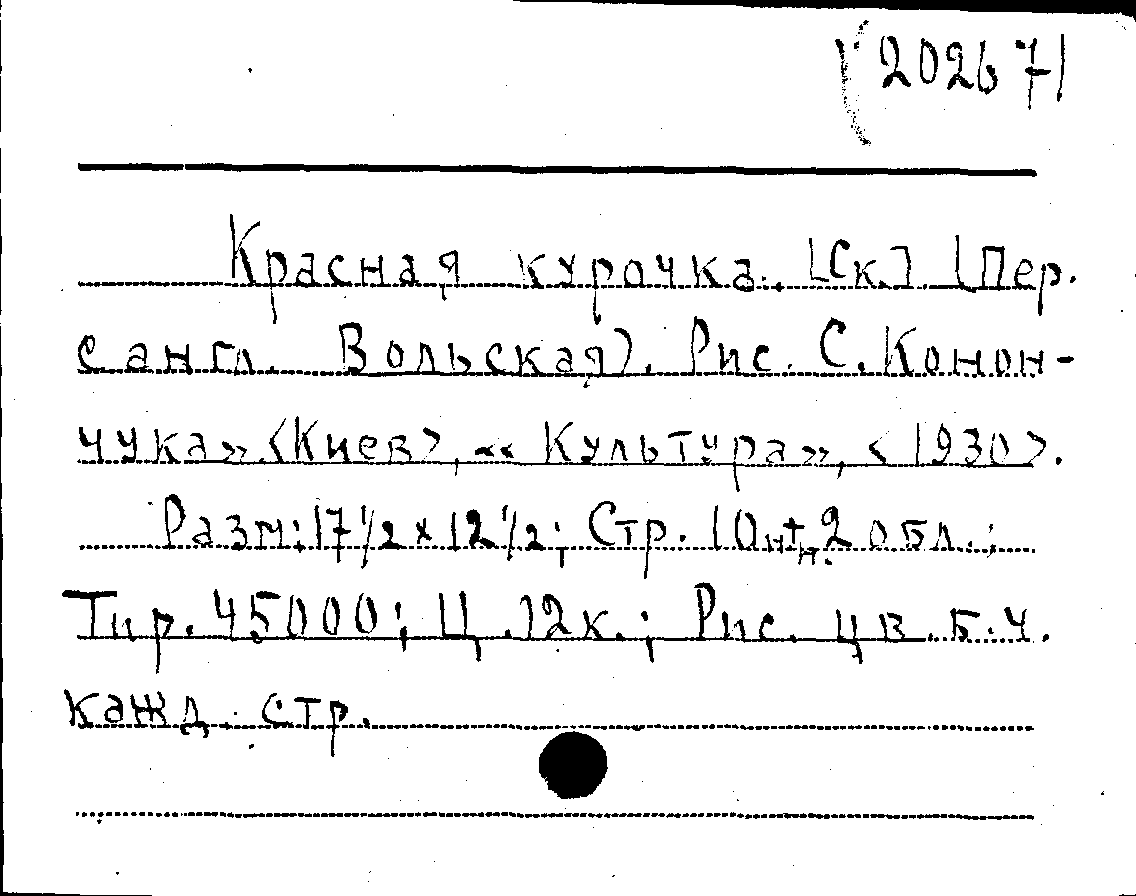 20267
Красная курочка. [Ск.]. [Пер.
с англ. Вольская]. Рис. С. Конон-
чука». <Киев>, «Культура», <1930>.
Разм: 17 1/2 x 12 1/2; Стр. 10н+н.2 обл.;
Тир. 45000; Ц. 12к.; Рис. цв. б.ч.
кажд. стр.